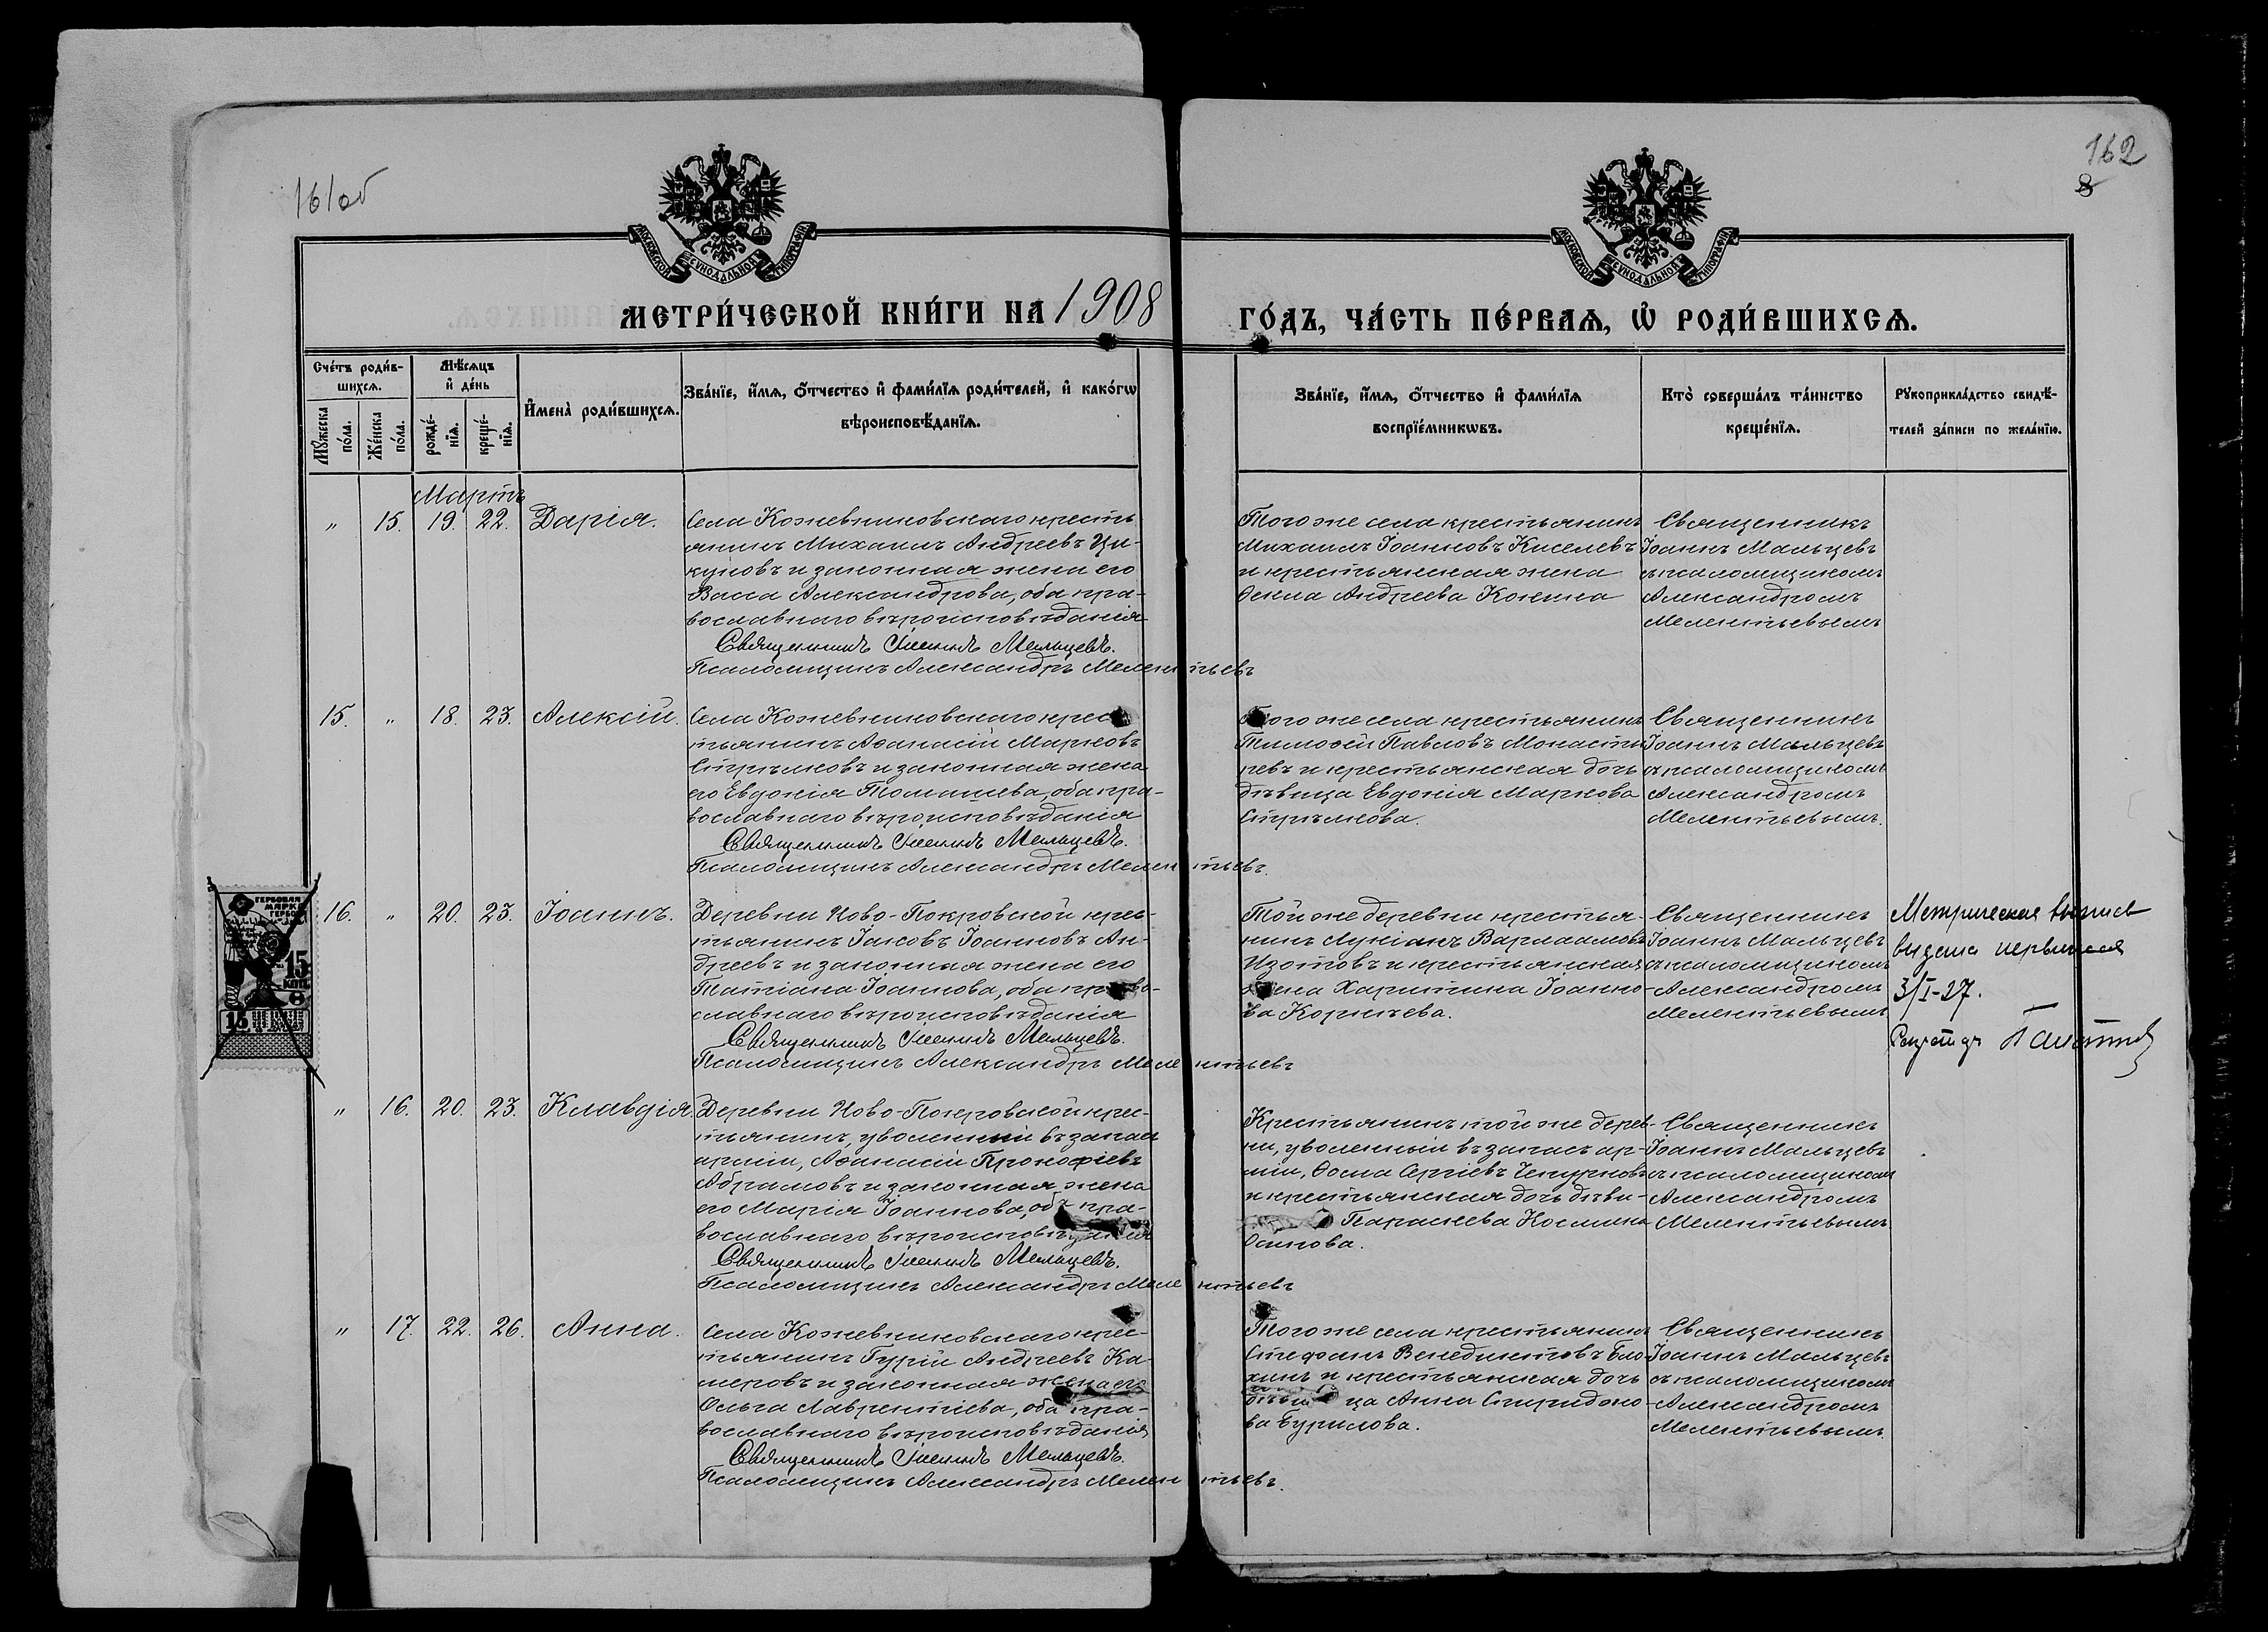 161об
162
8
МОСКОВСКОЙ СУНОДАЛЬНОЙ ТИПОГРАФІИ
МОСКОВСКОЙ СУНОДАЛЬНОЙ ТИПОГРАФІИ
МЕТРИ́ЧЕСКОЙ КНИ́ГИ НА 1908 ГО́ДЪ, ЧА́СТЬ ПЕ́РВАѦ, Ѡ РОДИ́ВШИХСѦ.
Сче́тъ роди́в-
шихсѧ.
Мꙋжеска по́ла.
Же́нска по́ла.
Мѣ́сѧцъ
и де́нь
рожде́-
нїѧ.
креще́-
нїѧ.
И҆мена̀ роди́вшихсѧ.
Зва́нїе, и҆́мѧ, ѻ҆́тчество и҆ фами́лїѧ роди́телей, и҆ како́гѡ
вѣроисповѣ́данїѧ.
Зва́нїе, и҆́мѧ, ѻ҆́тчество и҆ фами́лїѧ
воспрїе́мникѡвъ.
Кто̀ соверша́лъ та́инство
креще́нїѧ.
Рꙋкоприкла́дство свидѣ́-
телей за́писи по жела́нїю.
Мартъ
" 15. 19. 22. Дарія.
Села Кожевниковскаго кресть
янинъ Михаилъ Андреевъ Ци-
куновъ и законная жена его
Васса Александрова, оба пра-
вославнаго вѣроисповѣданія
Священникъ Іоаннъ Мальцевъ.
Псаломщикъ Александръ Мелентьевъ
Того же села крестьянинъ
Михаилъ Іоанновъ Киселевъ
и крестьянская жена
Ѳекла Андреева Конина
Священникъ
Іоаннъ Мальцевъ
съ псаломщикомъ
Александромъ
Мелентьевымъ
15. " 18. 23. Алексій.
Села Кожевниковскаго крес
тьянинъ Аѳанасій Марковъ
Стрѣлковъ и законная жена
его Евдокія Томашева, оба пра-
вославнаго вѣроисповѣданія
Священникъ Іоаннъ Мальцевъ.
Псаломщикъ Александръ Мелентьевъ.
Того же села крестьянинъ
Тимоѳей Павловъ Монасты
ревъ и крестьянская дочь
дѣвица Евдокія Маркова
Стрѣлкова.
Священникъ
Іоаннъ Мальцевъ
съ псаломщикомъ
Александромъ
Мелентьевымъ.
ГЕРБОВАЯ
МАРКА
15
КОП
15
16. " 20. 23. Іоаннъ.
Деревни Ново-Покровской крес-
тьянинъ Іаковъ Іоанновъ Ан-
дреевъ и законная жена его
Татіана Іоаннова, оба право-
славнаго вѣроисповѣданія
Священникъ Іоаннъ Мальцевъ.
Псаломщикъ Александръ Мелентьевъ
Той же деревни крестья-
нинъ Лукіанъ Варлаамовъ
Изотовъ и крестьянская
жена Харитина Іоанно-
ва Корнѣева.
Священникъ
Іоаннъ Мальцевъ
съ псаломщикомъ
Александромъ
Мелентьевымъ
Метрическая выпись
выдана первичная
3/I-27.
" 16. 20. 23. Клавдія.
Деревни Ново-Покровской крес-
тьянинъ, уволенный въ запасъ
арміи, Аѳанасій Прокофіевъ
Абрамовъ и законная жена
его Марія Іоаннова, оба пра-
вославнаго вѣроисповѣданія
Священникъ Іоаннъ Мальцевъ.
Псаломщикъ Александръ Мелентьевъ
Крестьянинъ той же дерев-
ни, уволенный въ запасъ ар-
міи, Ѳома Сергіевъ Чепурновъ
и крестьянская дочь дѣви-
Параскева Космина
Осипова.
Священникъ
Іоаннъ Мальцевъ
съ псаломщикомъ
Александромъ
Мелентьевымъ
" 17. 22. 26. Анна.
Села Кожевниковскаго крес-
тьянинъ Гурій Андреевъ Ка-
меровъ и законная жена его
Ольга Лаврентіева, оба пра-
вославнаго вѣроисповѣданія
Священникъ Іоаннъ Мальцевъ.
Псаломщикъ Александръ Мелентьевъ.
Того же села крестьянинъ
Стефанъ Венедиктовъ Бло-
хинъ и крестьянская дочь
дѣвица Анна Спиридоно-
ва Бурилова.
Священникъ
Іоаннъ Мальцевъ
съ псаломщикомъ
Александромъ
Мелентьевымъ.